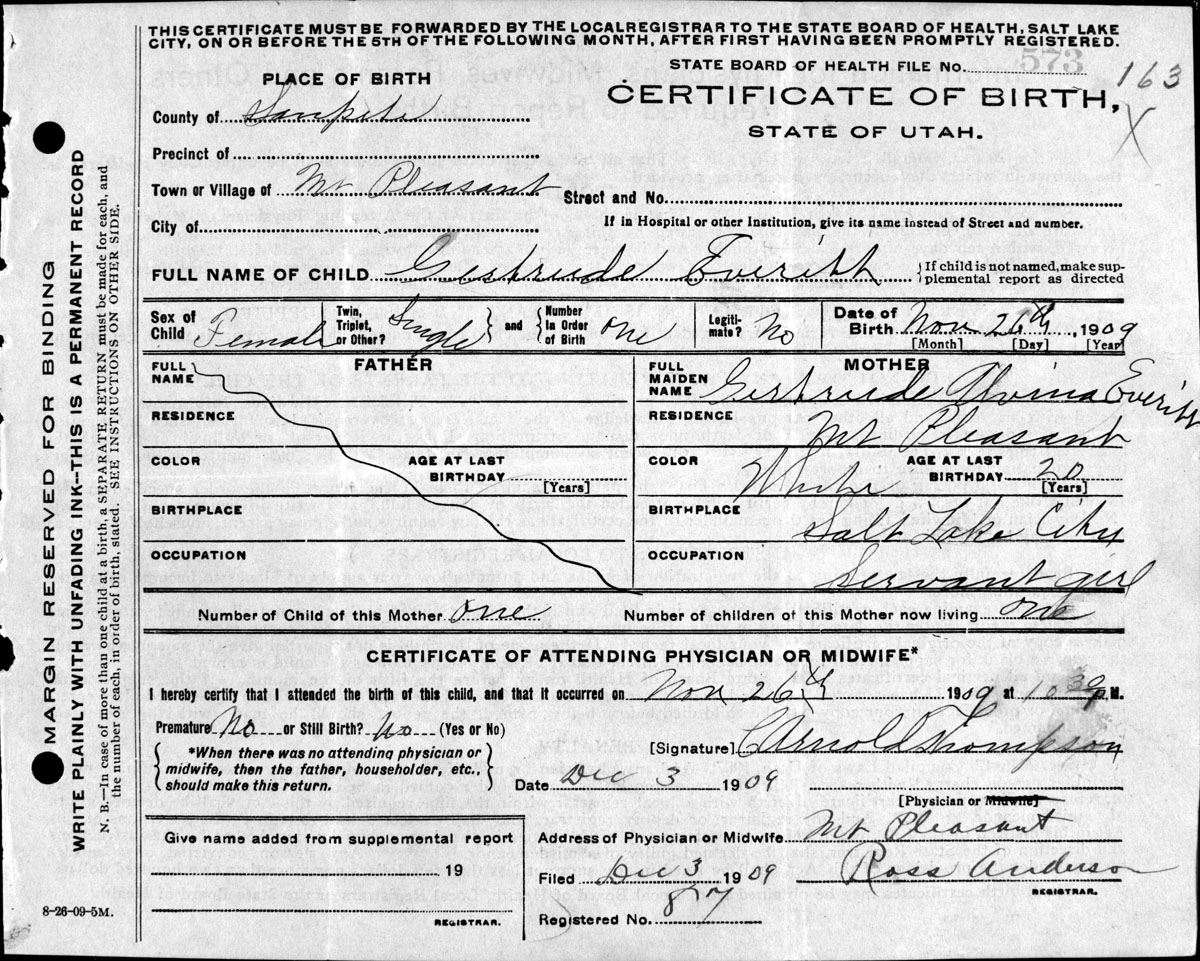 THIS CERTIFICATE MUST BE FORWARDED BY THE LOCALREGISTRAR TO THE STATE BOARD OF HEALTH, SALT LAKE
CITY, ON OR BEFORE THE 5TH OF THE FOLLOWING MONTH, AFTER FIRST HAVING BEEN PROMPTLY REGISTERED.
STATE BOARD OF HEALTH FILE No. 573 163
PLACE OF BIRTH
CERTIFICATE OF BIRTH, X
County of Sanpete
STATE OF UTAH.
Precinct of
Town or Village of Mt Pleasant
Street and No.
City of
If in Hospital or other Institution, give its name instead of Street and number.
FULL NAME OF CHILD Gertrude Everitt {If child is not named, make sup-
plemental report as directed
Sex of Child Female Twin, Triplet, or Other? Single } and { Number In Order of Birth one Legiti-mate? No Date of Birth Nov 26th, 1909
[Month] [Day] [Year]
FATHER
FULL NAME
RESIDENCE
COLOR AGE AT LAST BIRTHDAY [Years]
BIRTHPLACE
OCCUPATION
MOTHER
FULL MAIDEN NAME Gertrude Alvina Everitt
RESIDENCE Mt Pleasant
COLOR White AGE AT LAST BIRTHDAY 20 [Years]
BIRTHPLACE Salt Lake City
OCCUPATION Servant girl
Number of Child of this Mother one Number of children of this Mother now living one
CERTIFICATE OF ATTENDING PHYSICIAN OR MIDWIFE*
I hereby certify that I attended the birth of this child, and that it occurred on Nov 26th 1909 at 10 30 P M.
Premature No or Still Birth? No (Yes or No)
[Signature] C Arnold Thompson
{ *When there was no attending physician or
midwife, then the father, householder, etc.,
should make this return. }
Date Dec 3 1909
[Physician or Midwife]
Give name added from supplemental report
Address of Physician or Midwife Mt Pleasant
19
Filed Dec 3 1909 Ross Anderson
REGISTRAR.
REGISTRAR.
Registered No. 87
8-26-09-5M.
MARGIN RESERVED FOR BINDING
WRITE PLAINLY WITH UNFADING INK--THIS IS A PERMANENT RECORD
N. B.—In case of more than one child at a birth, a SEPARATE RETURN must be made for each, and
the number of each, in order of birth, stated. SEE INSTRUCTIONS ON OTHER SIDE.